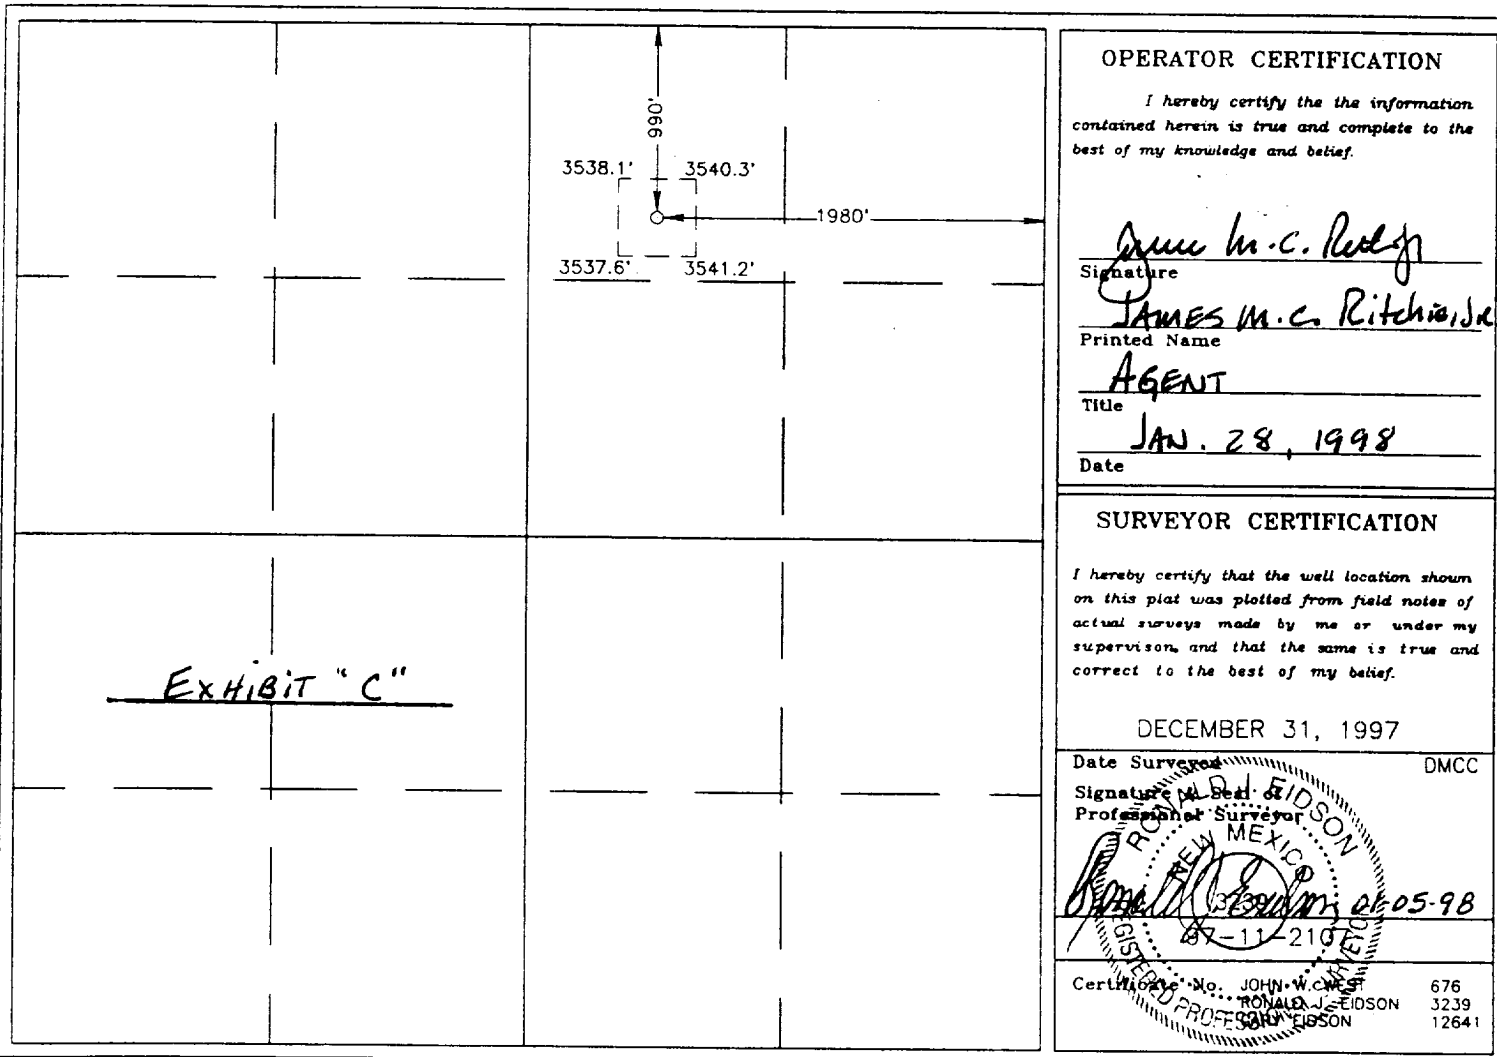 990'
3538.1' 3540.3'
1980'
3537.6' 3541.2'
EXHIBIT "C"
OPERATOR CERTIFICATION
I hereby certify the the information
contained herein is true and complete to the
best of my knowledge and belief.
Signature
JAMES M.C. Ritchie, Jr
Printed Name
AGENT
Title
JAN. 28, 1998
Date
SURVEYOR CERTIFICATION
I hereby certify that the well location shown
on this plat was plotted from field notes of
actual surveys made by me or under my
supervison, and that the same is true and
correct to the best of my belief.
DECEMBER 31, 1997
Date Surveyed DMCC
Signature & Seal of
Professional Surveyor
RONALD J. EIDSON
NEW MEXICO
3239
REGISTERED PROFESSIONAL SURVEYOR
01-05-98
97-11-2107
Certificate No. JOHN W. WEST 676
RONALD J. EIDSON 3239
GARY EIDSON 12641